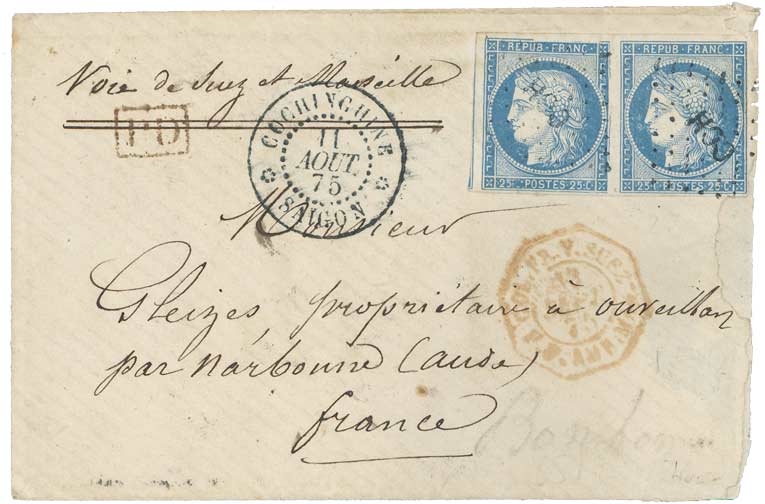 REPUB · FRANC ·
REPUB FRANC ·
25 POSTES 25 C
25 POSTES 25 C
Voie de Suez et Marseille
PD
COCHINCHINE
11
AOUT
75
SAIGON
Monsieur
Gleizes, propriétaire à ouveillan
par narbonne (aude)
france
V. SUEZ